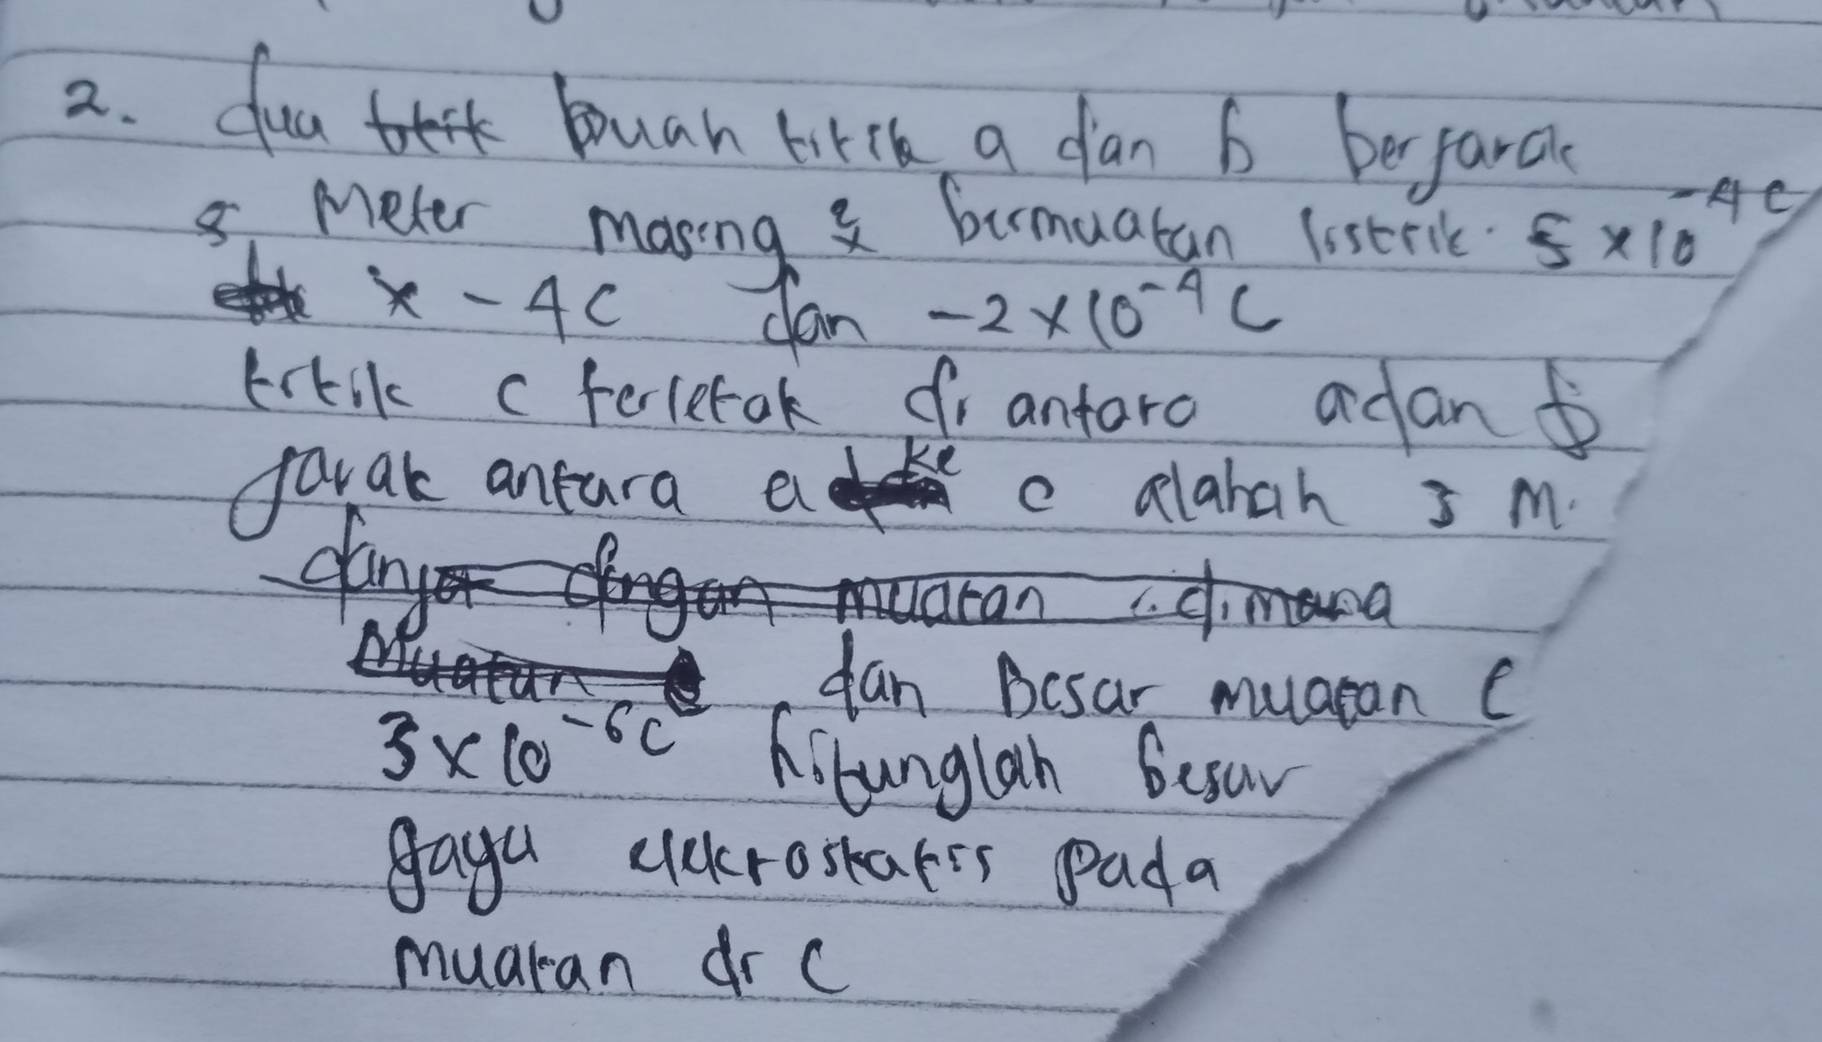 2. dua buah titik a dan b berjarak
8 Meter masing 2 bermuatan listrik. 5 x 10^-4 C
x - 4 C dan -2 x 10^-4 C
titik C terletak di antara a dan b
jarak antara a ke c alahah 3 M.
danya dengan muatan dimana
Muatan dan Besar muatan C
3 x 10^-6 C hitunglah besar
gaya elekrostatis pada
muatan di C